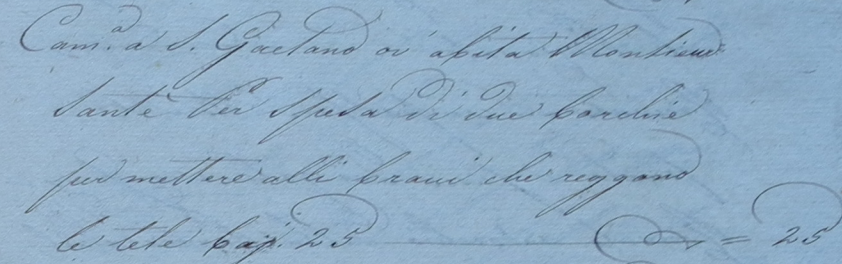 Cam.a a S. Gaetano ov' abita Monsieur
Santé Per spesa di due Corchie
per mettere alli Bracci che reggono
le tele baj. 25 = 25